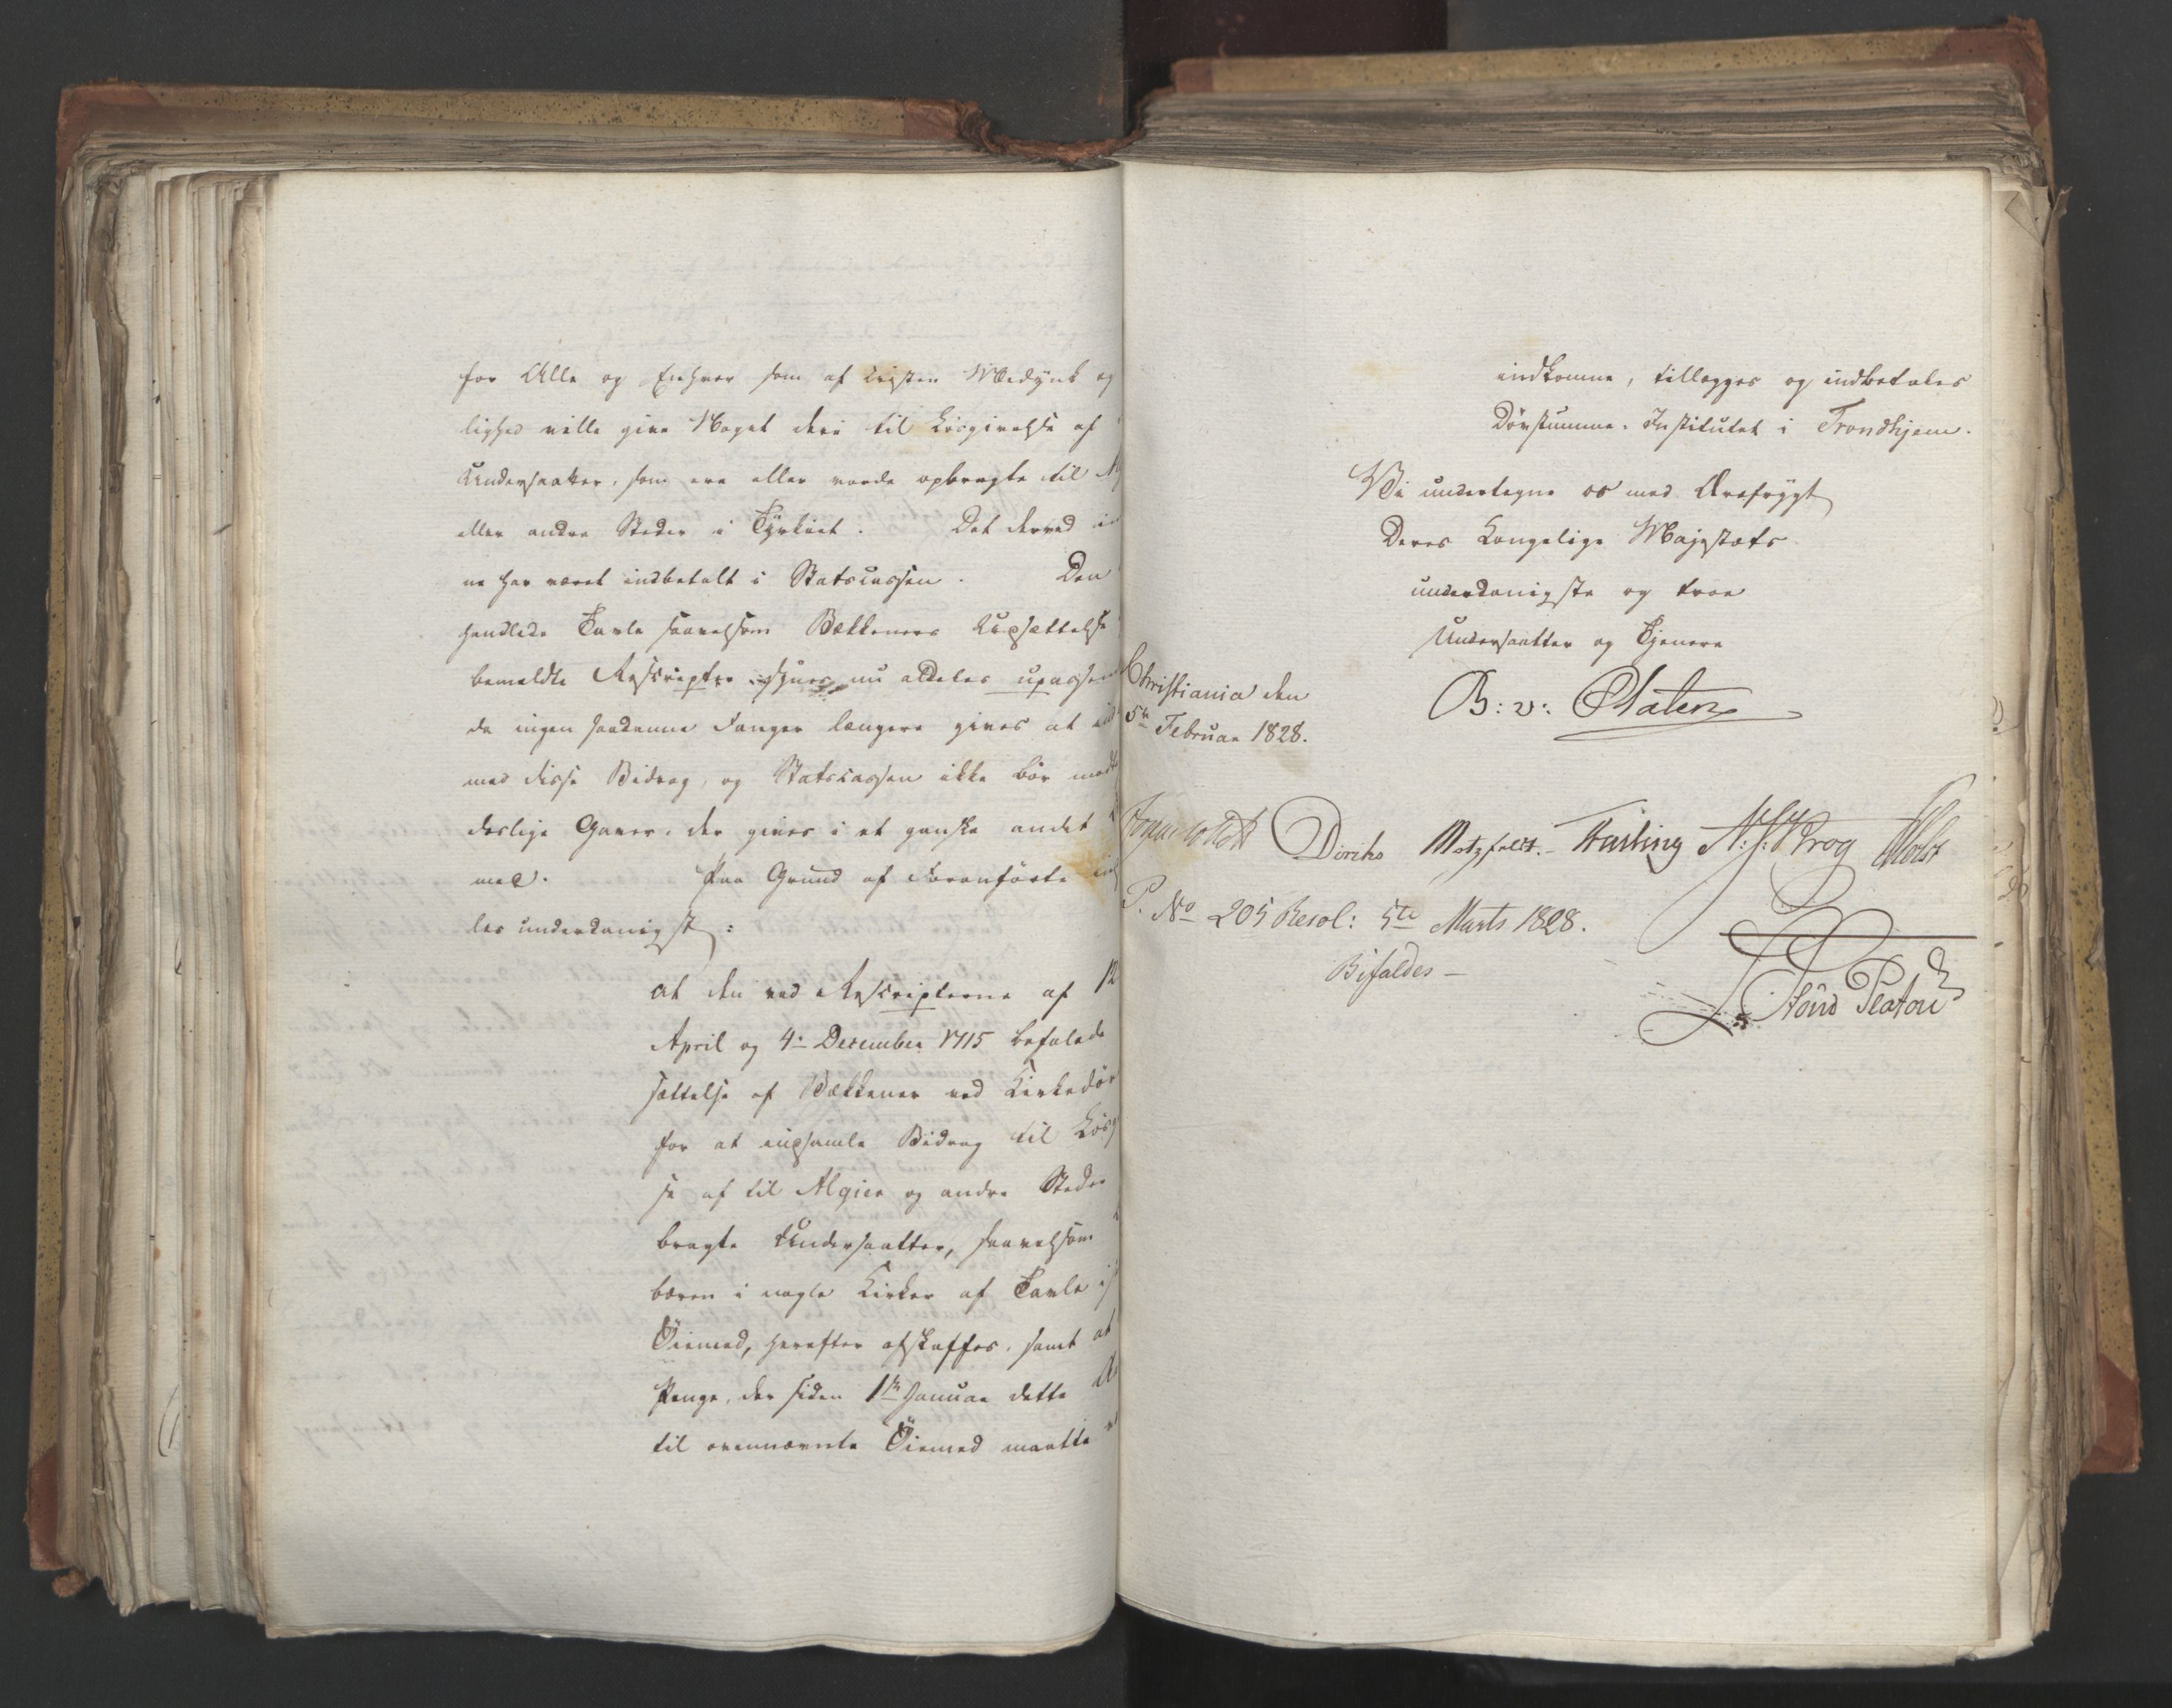 for Alle og Enhver som af kristen Medynk og
lighed ville give Noget deri til Løsgivelse af
Undersaatter, som ere eller vorde opbragte til
eller andre Steder i Tyrkiet. Det derved
ne har været indbetalt i Statscassen. Den
handlede Tavle saavelsom Bekkeners Udsættelse
bemeldte Rescripter synes nu aldeles upassen
da ingen saadanne Fanger længere gives at
med disse Bidrag, og Statscassen ikke bør mod
deslige Gaver, der gives i et ganske andet
med. Paa Grund af Foranførte ind
les underdanigst:
at den ved Rescripterne af 12
April og 4de December 1715 befalede
sættelse af Bekkener ved Kirkedør
for at indsamle Bidrag til Løsg
se af til Algier og andre Steder
bragte Undersaatter, saavelsom
bæren i nogle Kirker af Tavle i
Øiemed, herefter afskaffes, samt at
Penge, der siden 1ste Januar dette
til ovennævnte Øiemed maatte
indkomme, tillægges og indbetales
Døvstumme-Institutet i Trondhjem.
Vi undertegne os med Ærefrygt
Deres Kongelige Majestæts
underdanigste og troe
Undersaatter og Tjenere
B: v: Platen
Christiania den
5te Februar 1828.
Diriks Motzfeldt. Fasting N. J. Krog Holst
P. No 205 Resol: 5te Marts 1828.
Bifaldes
Stoud Platou